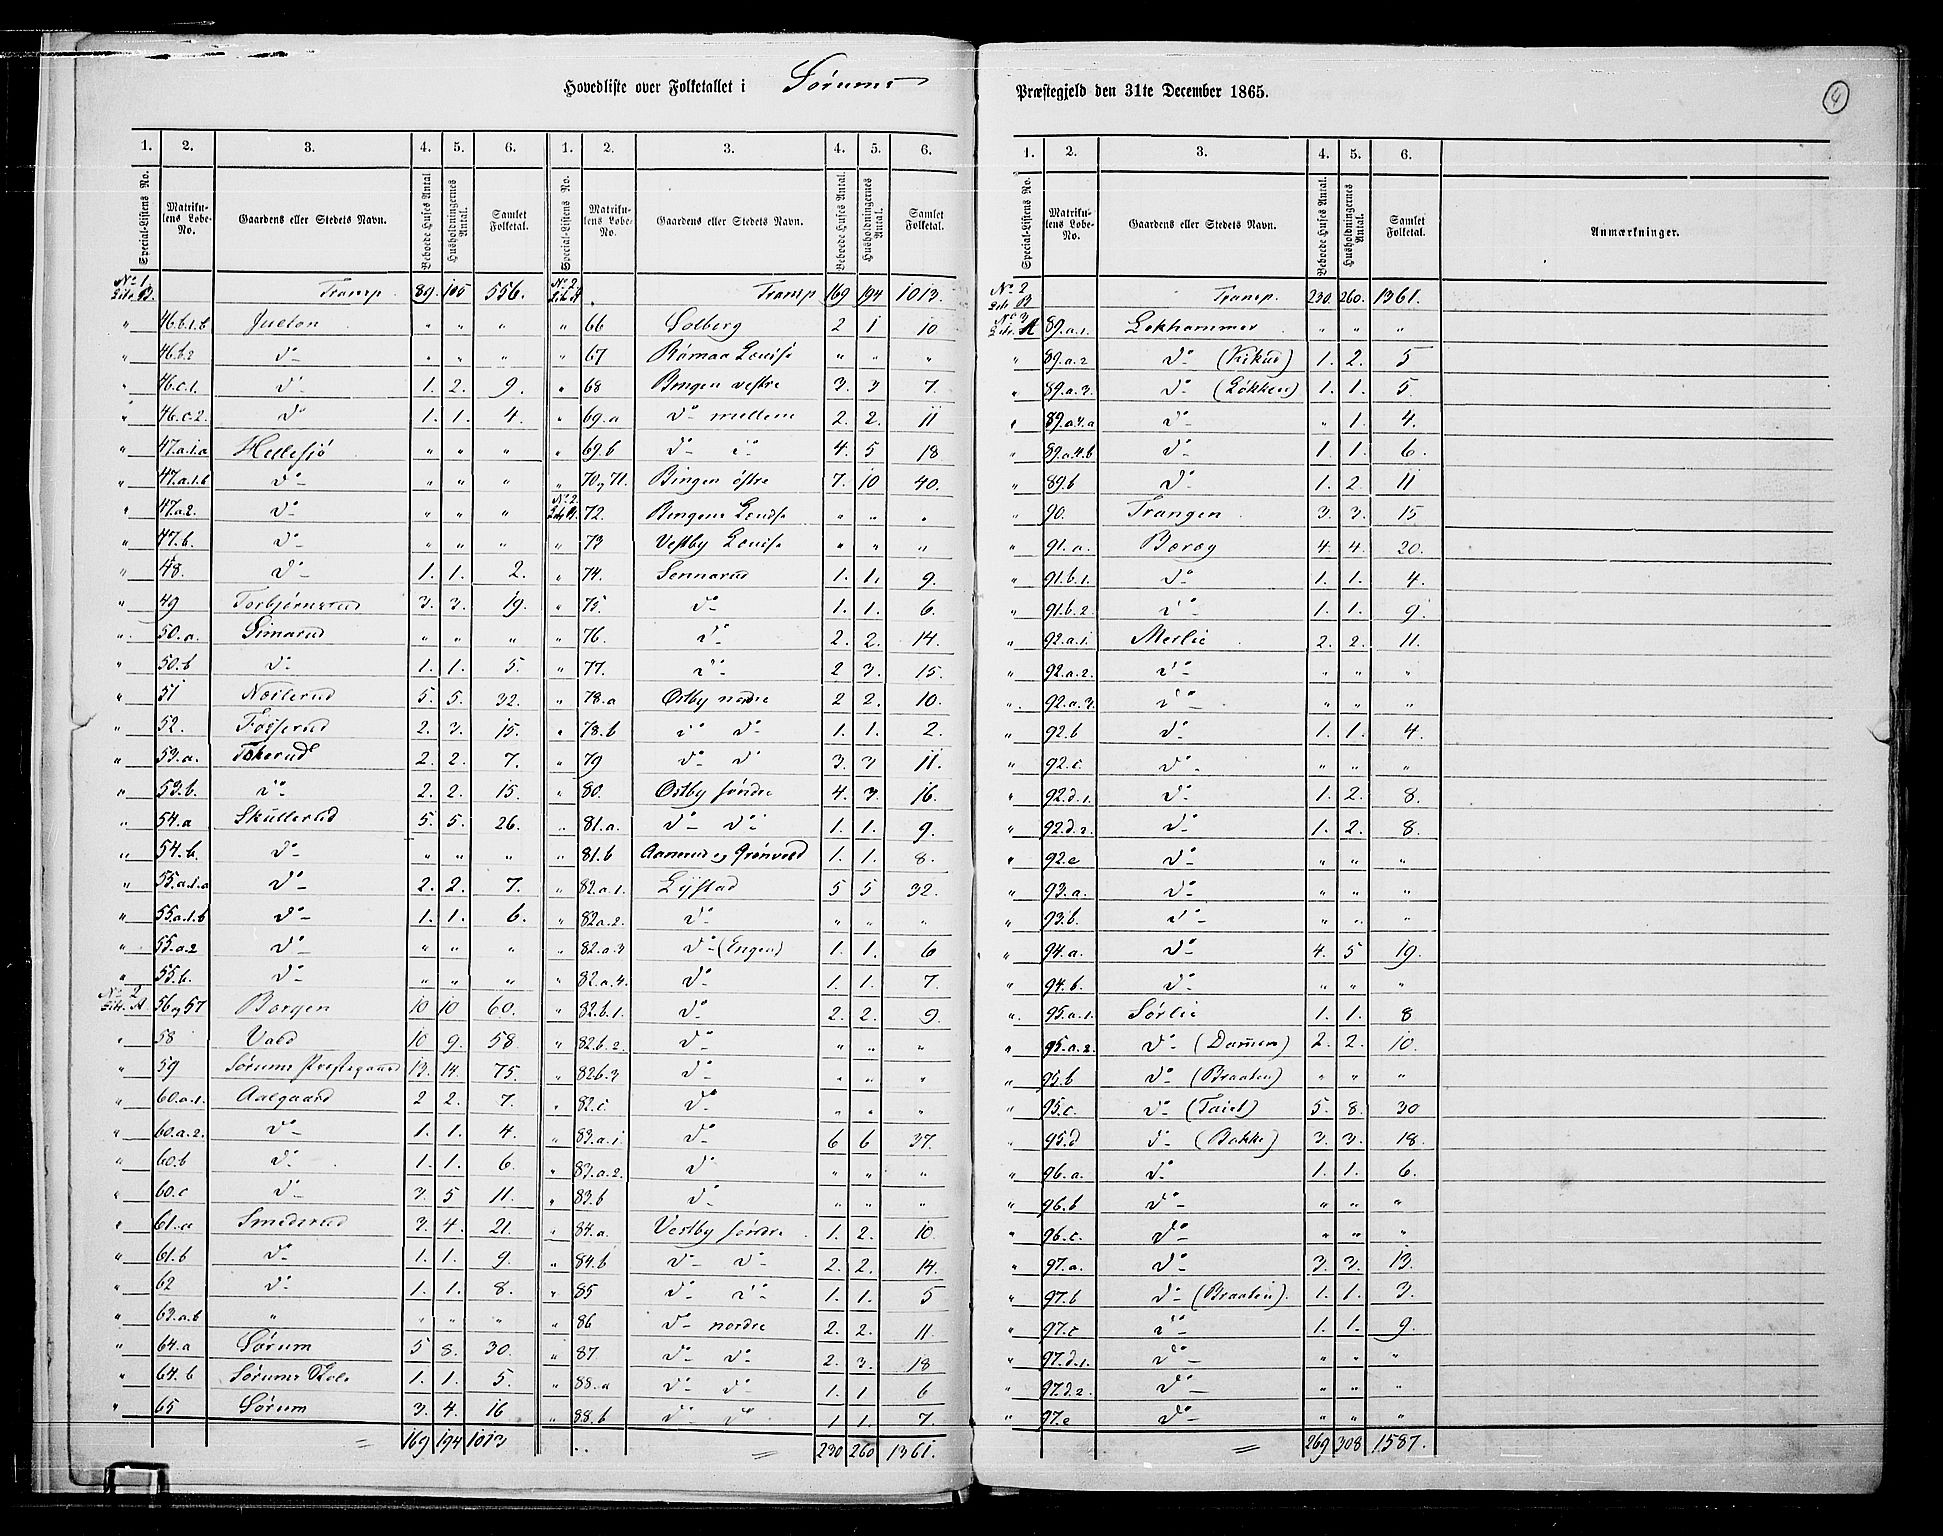 Hovedliste over Folketallet i Sørums Præstegjeld den 31te December 1865.
4
1. 2. 3. 4. 5. 6. 1. 2. 3. 4. 5. 6.
Special-Listens No. Matrikulens Løbe-No. Gaardens eller Stedets Navn. Beboede Huses Antal. Husholdningernes Antal. Samlet Folketal. Special-Listens No. Matrikulens Løbe-No. Gaardens eller Stedets Navn. Beboede Huses Antal. Husholdningernes Antal. Samlet Folketal.
No 1. Litr. B. Transp. 89. 105 556. No 2 Litr A Transp 169 194 1013.
" 46.b.1.b Juelton " " " " 66 Solberg 2 1 10
" 46.b.2 do " " " " 67 Rømaa " " "
" 46.c.1. do 1. 2. 9. " 68 Bingen vestre 3. 3 7.
" 46.c.2. do 1. 1. 4. " 69.a do mellem 2. 2. 11
" 47.a.1.a Hellesjø " " " " 69.b do do 4. 5 18
" 47.a.1.b do " " " " 70 og 71. Bingen østre 7. 10 40.
" 47.a.2. do " " " No 2. Litr B. 72. Bingens " " "
" 47.b. do " " " " 73 Vestby " " "
" 48. do 1. 1. 2. " 74. Sennerud 1. 1. 9.
" 49 Torbjørnsrud 3. 3. 19. " 75. do 1. 1. 6.
" 50.a. Simarud " " " " 76. do 2. 2. 14.
" 50.b do 1. 1. 5. " 77. do 2 3. 15.
" 51 Næsterud 5. 5. 32. " 78.a Østby nordre 2 2. 10.
" 52. Fosserud 2. 3. 15. " 78.b do do 1. 1. 2.
" 53.a. Tokerud 2. 2. 7. " 79 do do 3. 3 11.
" 53.b. do 2. 2. 15. " 80. Østby søndre 4. 3. 16.
" 54.a Skullerud 5. 5. 26. " 81.a. do do 1. 1. 9.
" 54.b. do " " " " 81.b Aamrud og Grønvold 1. 1. 8.
" 55.a.1.a do 2. 2. 7. " 82.a.1. Lystad 5 5 32.
" 55.a.1.b do 1. 1. 6. " 82.a.2. do " " "
" 55.a.2 do " " " " 82.a.3 do (Engen) 1. 1. 6
" 55.b. do " " " " 82.a.4. do 1. 1. 7.
No 2 Litr. A 56 og 57 Borgen 10 10 60. " 82.b.1. do 2. 2. 9.
" 58 Vald 10 9. 58 " 82.b.2 do " " "
" 59 Sørums Præstegaard 13. 14. 75. " 82.b.3 do " " "
" 60.a.1. Aalgaard 2 2. 7. " 82.c do " " "
" 60.a.2. do 1. 1. 4. " 83.a.1. do 6 6 37.
" 60.b do 1. 1. 6. " 83.a.2. do " " "
" 60.c do 3. 5 11. " 83.b do " " "
" 61.a Smederud 3. 4. 21. " 84.a. Vestby søndre 1. 2. 10.
" 61.b do 1. 1. 9. " 84.b do do 2. 2. 14.
" 62 do 1. 1. 8. " 85 do do 1. 1. 5
" 63.a.b " " " " " 86 do nordre 2. 2. 11.
" 64.a Sørum 5 8. 30. " 87 do do 2. 3. 18
" 64.b Sørums Skole 1. 1. 5. " 88.a do do 1. 1 6
" 65 Sørum 3. 4. 16 " 88.b do do 1. 1. 7.
= 169 194 1013 = 230 260 1361.
1. 2. 3. 4. 5. 6.
Special-Listens No. Matrikulens Løbe-No. Gaardens eller Stedets Navn. Beboede Huses Antal. Husholdningernes Antal. Samlet Folketal. Anmærkninger.
No 2 Litr B Transp. 230 260. 1361.
No 3 Litr. A 89.a.1. Lekhammer " " "
" 89.a.2 do (Kikud) 1. 2. 5
" 89.a.3. do (Løkken) 1. 1. 5.
" 89.a.4.a do " 1. 4.
" 89.a.4.b do 1. 1. 6.
" 89.b do 1. 2. 11
" 90. Trangen 3. 3. 15
" 91.a. Børeg 4. 4. 20.
" 91.b.1. do 1. 1. 4.
" 91.b.2. do 1. 1. 9.
" 92.a.1. Merlie 2. 2. 11.
" 92.a.2. do " " "
" 92.a.3. do " " "
" 92.b do 1. 1. 4
" 92.c. do " " "
" 92.d.1. do 1. 2. 8.
" 92.d.2. do 1. 2. 8.
" 92.e do " " "
" 93.a. do " " "
" 93.b. do " " "
" 94.a. do 4. 5 19.
" 94.b. do " " "
" 95.a.1. Sørlie 1. 1. 8
" 95.a.2. do (Dammen) 2. 2. 10.
" 95.b do (Braaten) " " "
" 95.c. do (Taiet) 5. 8. 30
" 95.d do (Bakke) 3. 3. 18.
" 96.a. do 1. 1. 6.
" 96.b do " " "
" 96.c. do " " "
" 97.a. do 3. 3. 13.
" 97.b do (Braaten). 1. 1. 3.
" 97.c do 1. 1. 9.
" 97.d.1. do " " "
" 97.d.2. do " " "
" 97.e do " " "
= 269 308 1587.